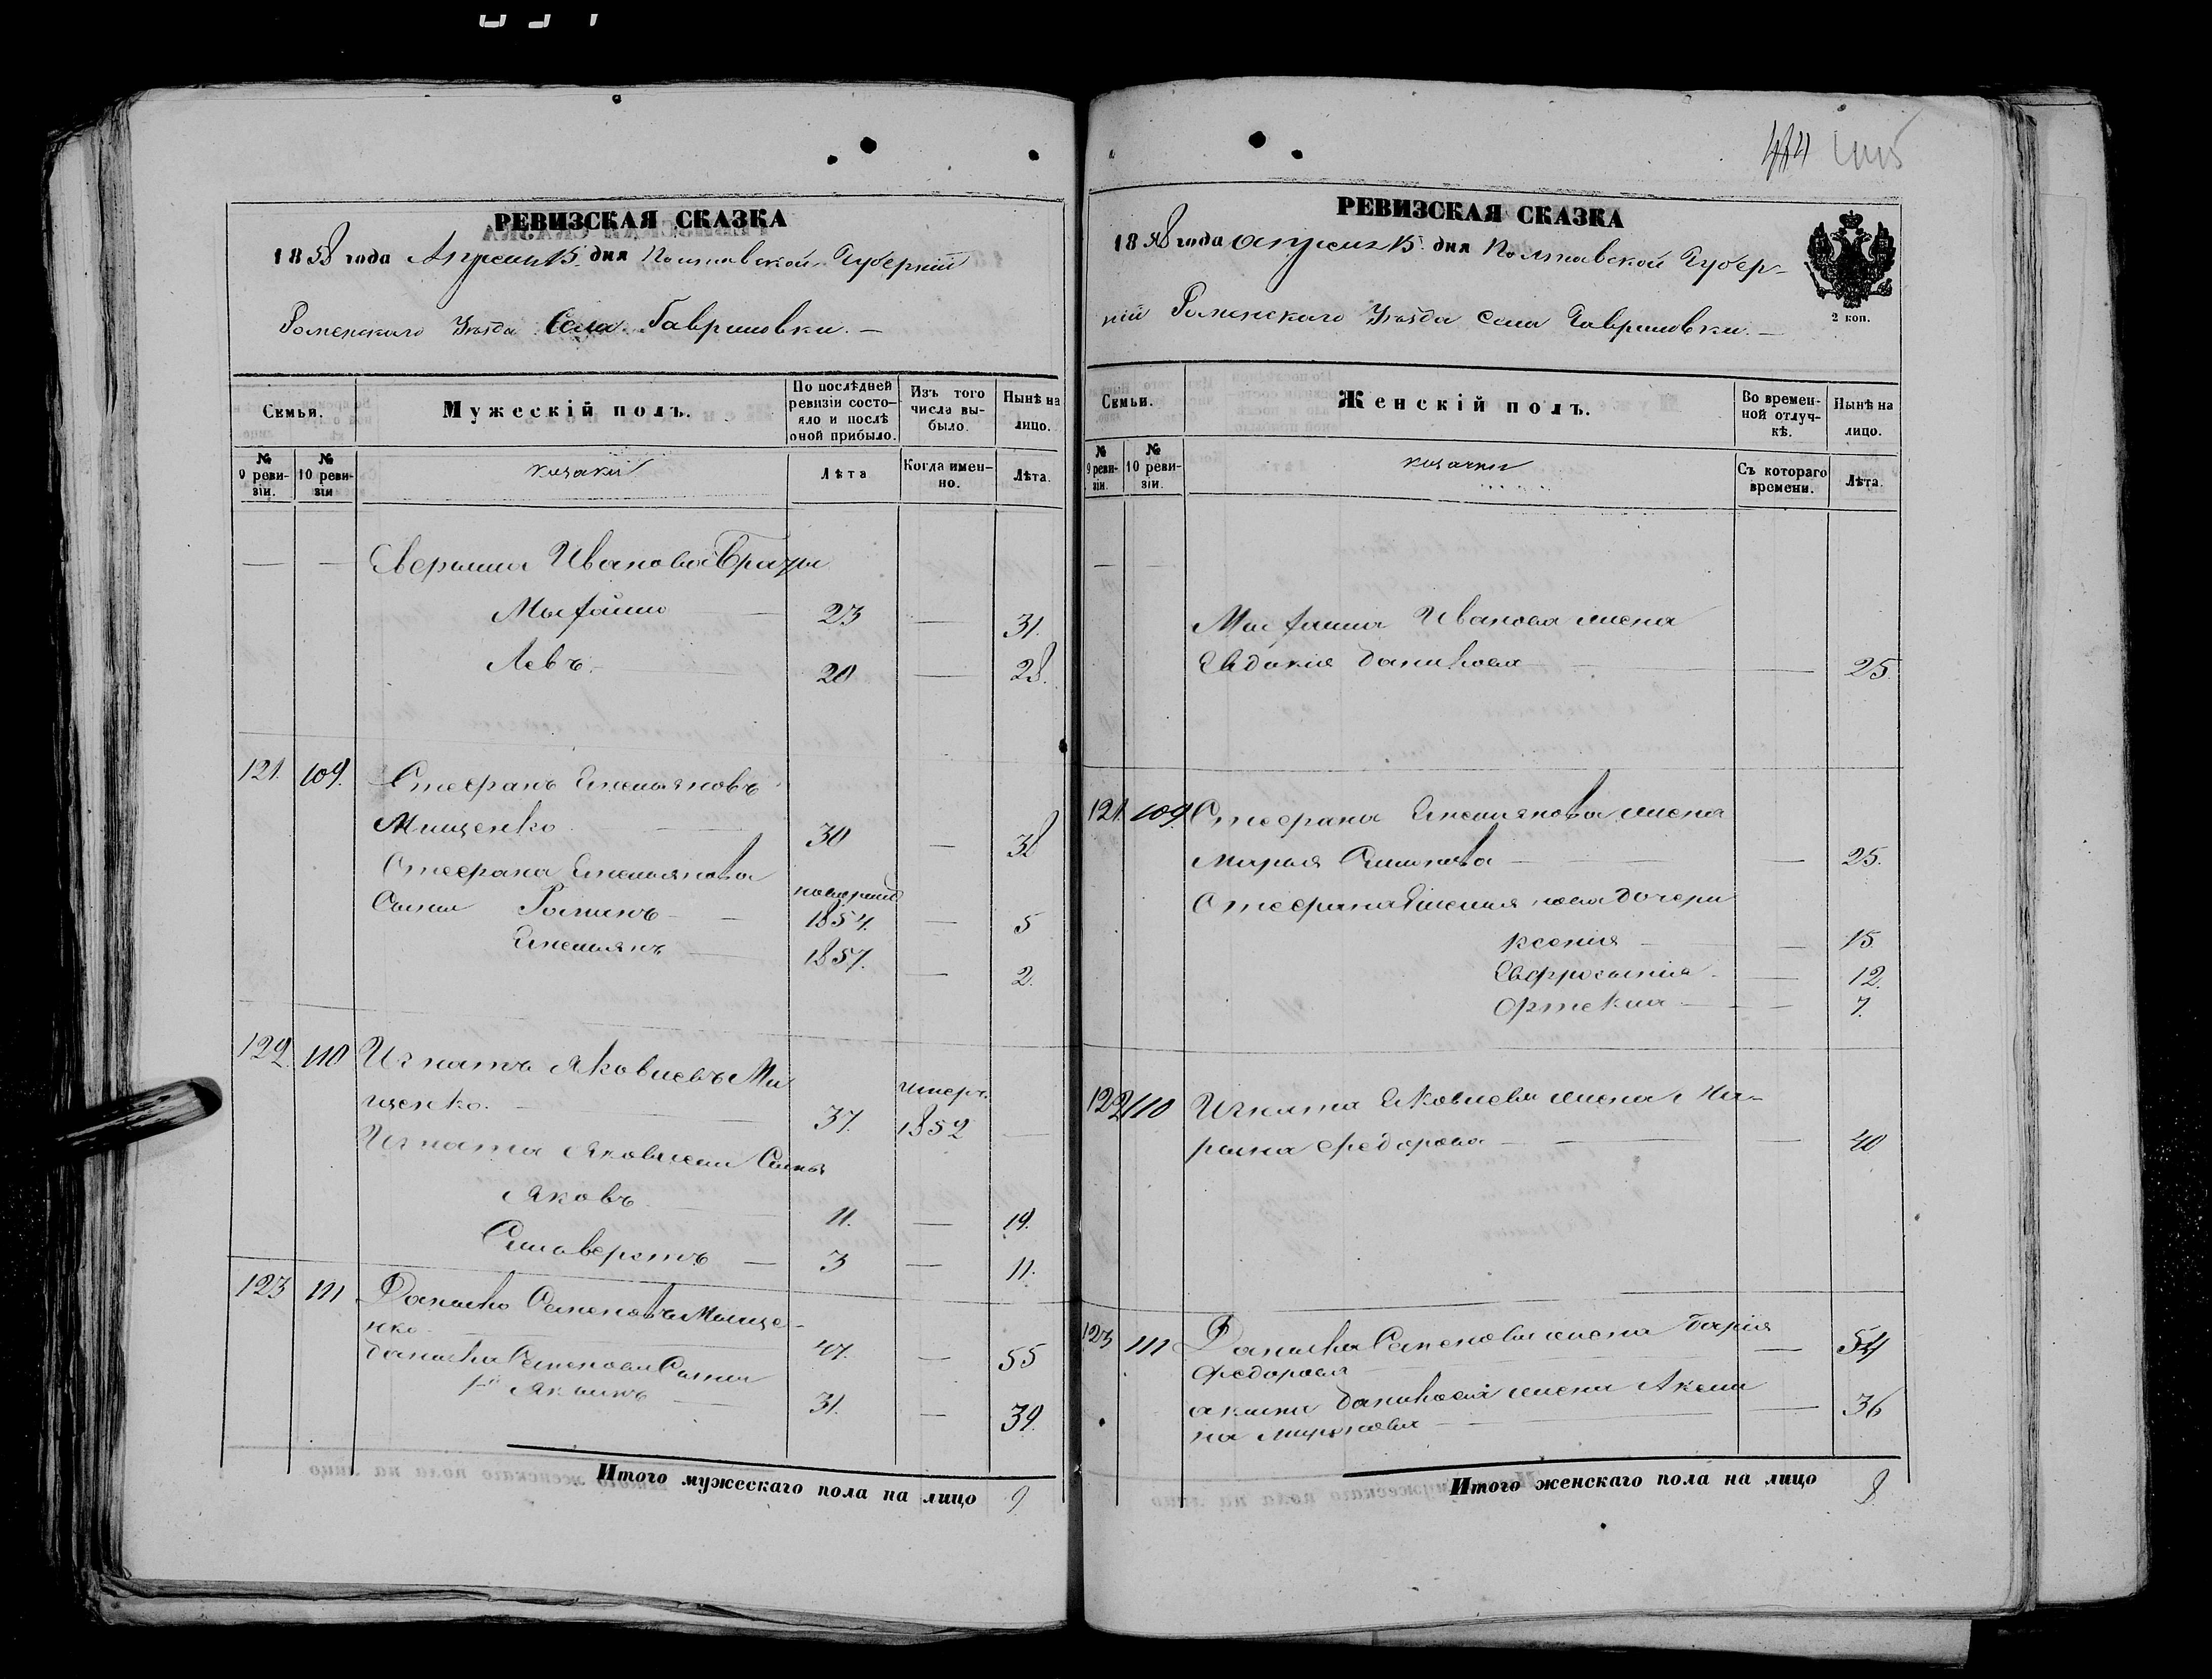 РЕВИЗСКАЯ СКАЗКА
1858 года Апреля 15 дня Полтавской Губерніи
Роменскаго Уѣзда Села Гавриловки. —
Семьи.
Мужескій полъ.
По послѣдней ревизіи состояло и послѣ оной прибыло.
Изъ того числа выбыло.
Нынѣ на лицо.
№ 9 ревизіи.
№ 10 ревизіи
козаки
Лѣта
Когда именно.
Лѣта.
— — Аверьяна Иванова Братья
— 23 — 31.
Левъ. 20 — 28.
121. 109. Стефанъ Емельяновъ
Мищенко. 30 — 38
Стефана Емельянова
Сыни Романъ — новорожд 1854. — 5
Емельянъ — 1857. — 2.
122. 110 Игнатъ Яковлевъ Ми
щенко. — 37. умеръ 1852 —
Игната Яковлева Сыны
Яковъ. 11. — 19.
— 3 — 11.
123 111 Данило Семеновъ Мище-
нко. 47. — 55
Данила Семенова Сыни
1й Акимъ — 31. — 39.
Итого мужескаго пола на лицо 9.
РЕВИЗСКАЯ СКАЗКА
1858 года Апреля 15 дня Полтавской Губер-
ніи Роменскаго Уѣзда Села Гавриловки. —
2 коп.
Семьи.
Женскій полъ.
Во временной отлучкѣ.
Нынѣ на лицо.
№ 9 ревизіи.
№ 10 ревизіи.
козачки
Съ котораго времени.
Лѣта.
— — Иванова жена
Евдокия Данилова — 25.
121. 109. Стефана Емельянова жена
Марья — — 25.
Стефана Емельянова дочери
Ксения — — 15.
Евфросиния — — 12.
— — 7.
122 110 Игната Яковлева жена Ма-
рина Федорова — — 40
123 111 Данила Семенова жена Дария
Федорова — 54
Акима Данилова жена Акели
на Миронова — — 36
Итого женскаго пола на лицо 8.